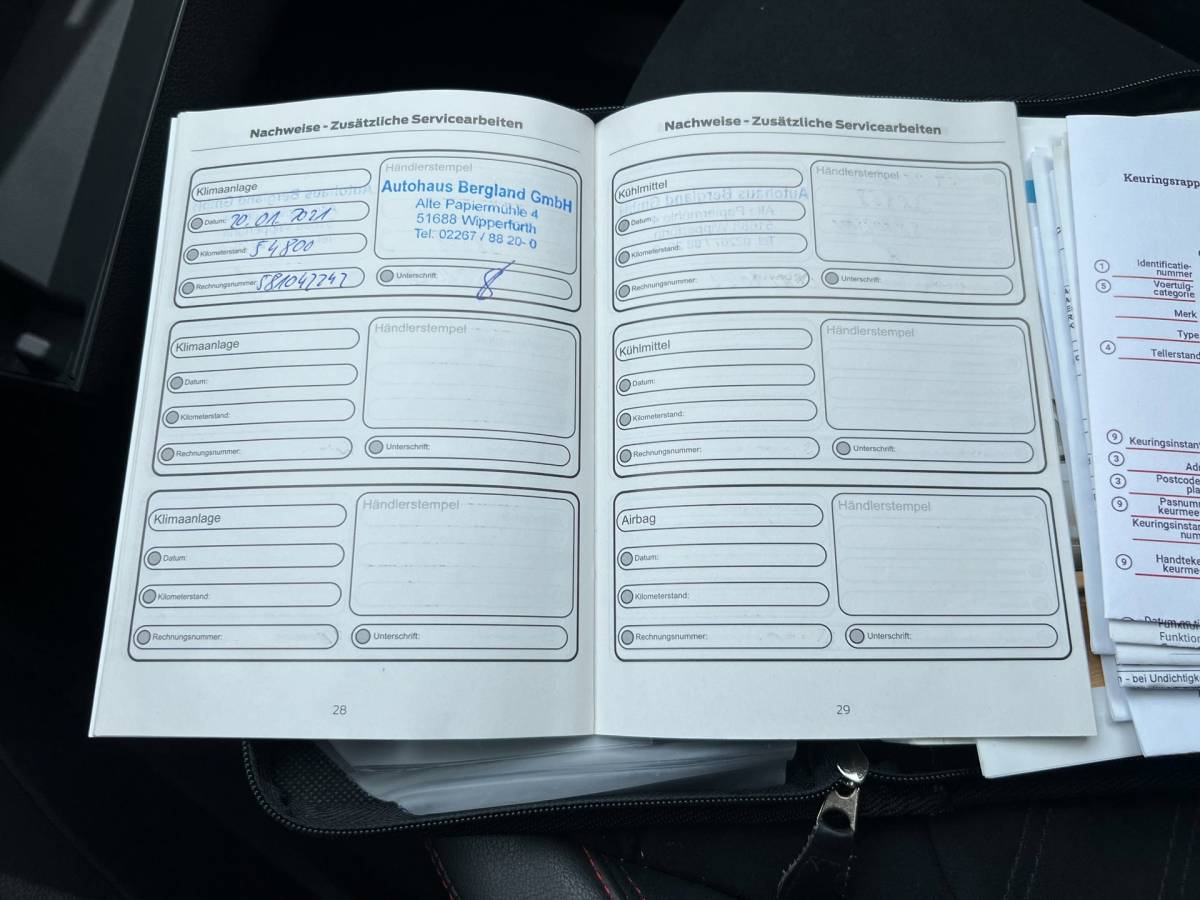 Nachweise - Zusätzliche Servicearbeiten
Klimaanlage
Datum: 20.01.2021
Kilometerstand: 54800
Rechnungsnummer:
Händlerstempel
Autohaus Bergland GmbH
Alte Papiermühle 4
51688 Wipperfürth
Tel: 02267 / 88 20-0
Unterschrift:
Klimaanlage
Datum:
Kilometerstand:
Rechnungsnummer:
Händlerstempel
Unterschrift:
Klimaanlage
Datum:
Kilometerstand:
Rechnungsnummer:
Händlerstempel
Unterschrift:
28
Nachweise - Zusätzliche Servicearbeiten
Kühlmittel
Datum:
Kilometerstand:
Rechnungsnummer:
Händlerstempel
Unterschrift:
Kühlmittel
Datum:
Kilometerstand:
Rechnungsnummer:
Händlerstempel
Unterschrift:
Airbag
Datum:
Kilometerstand:
Rechnungsnummer:
Händlerstempel
Unterschrift:
29
Keuringsrapp
1 Identificatie-
nummer
5 Voertuig-
categorie
Merk
Type
4 Tellerstand
9 Keuringsinstan
3 Ad
3 Postcode
pla
9 Pasnum
keurmee
Keuringsinsta
num
9 Handteke
keurme
Funktion
- bei Undichtigk